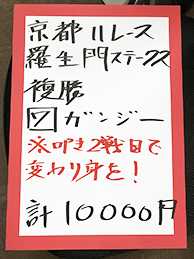 京都11レース
羅生門ステークス
複勝
7 ガンジー
※叩き2戦目で
変わり身を!
計10000円